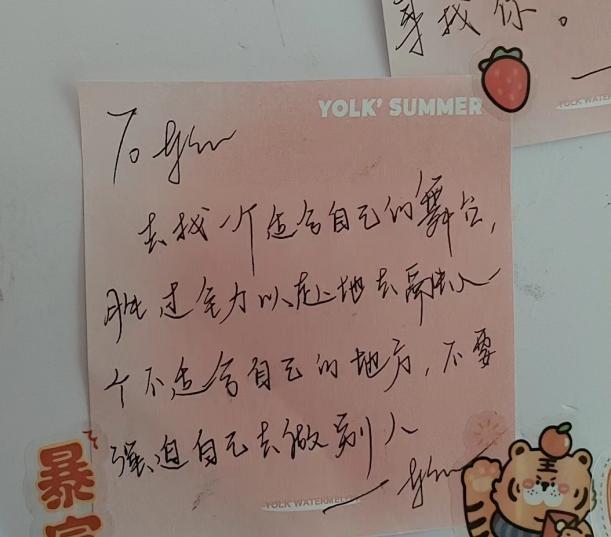 寻找你。
YOLK' SUMMER
To
去找一个适合自己的舞台，
胜过全力以赴地去融入一
个不适合自己的地方，不要
强迫自己去做别人
YOLK WATERMELON
暴富